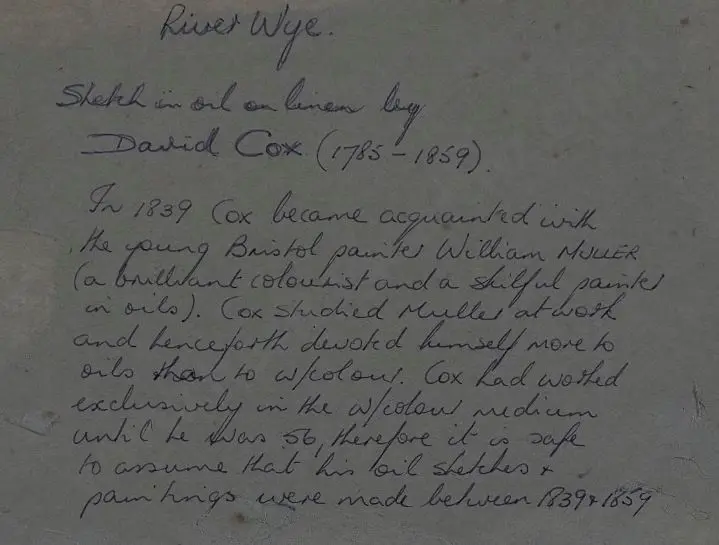 River Wye.
Sketch in oil on linen by
David Cox (1785 - 1859).
In 1839 Cox became acquainted with
the young Bristol painter William MULLER
(a brilliant colourist and a skilful painter
in oils). Cox studied Muller at work
and henceforth devoted himself more to
oils than to w/colour. Cox had worked
exclusively in the w/colour medium
until he was 56, therefore it is safe
to assume that his oil sketches +
paintings were made between 1839 + 1859